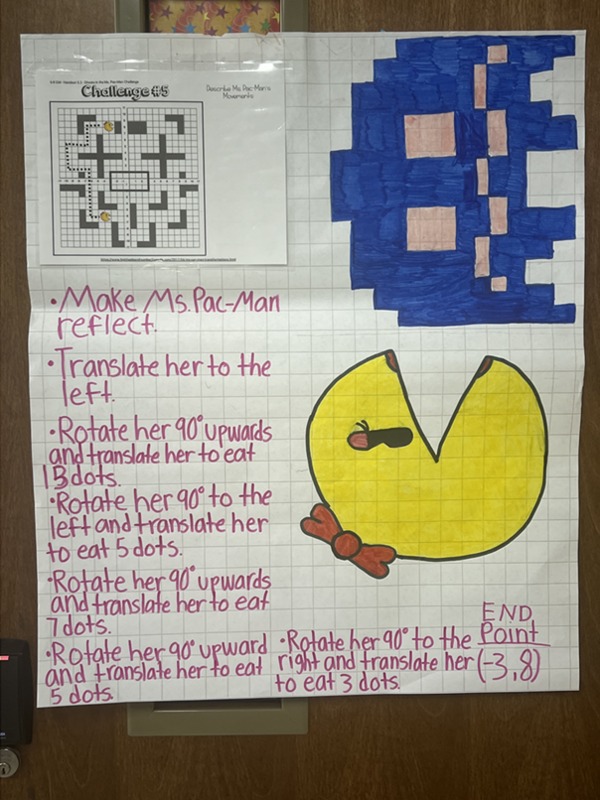 Challenge #5
Describe Ms. Pac-Man's
Movements
•Make Ms. Pac-Man
reflect.
•Translate her to the
left.
•Rotate her 90° upwards
and translate her to eat
13 dots.
•Rotate her 90° to the
left and translate her
to eat 5 dots.
•Rotate her 90° upwards
and translate her to eat
7 dots.
•Rotate her 90° upward
and translate her to eat
5 dots.
•Rotate her 90° to the
right and translate her
to eat 3 dots.
END
Point
(-3,8)